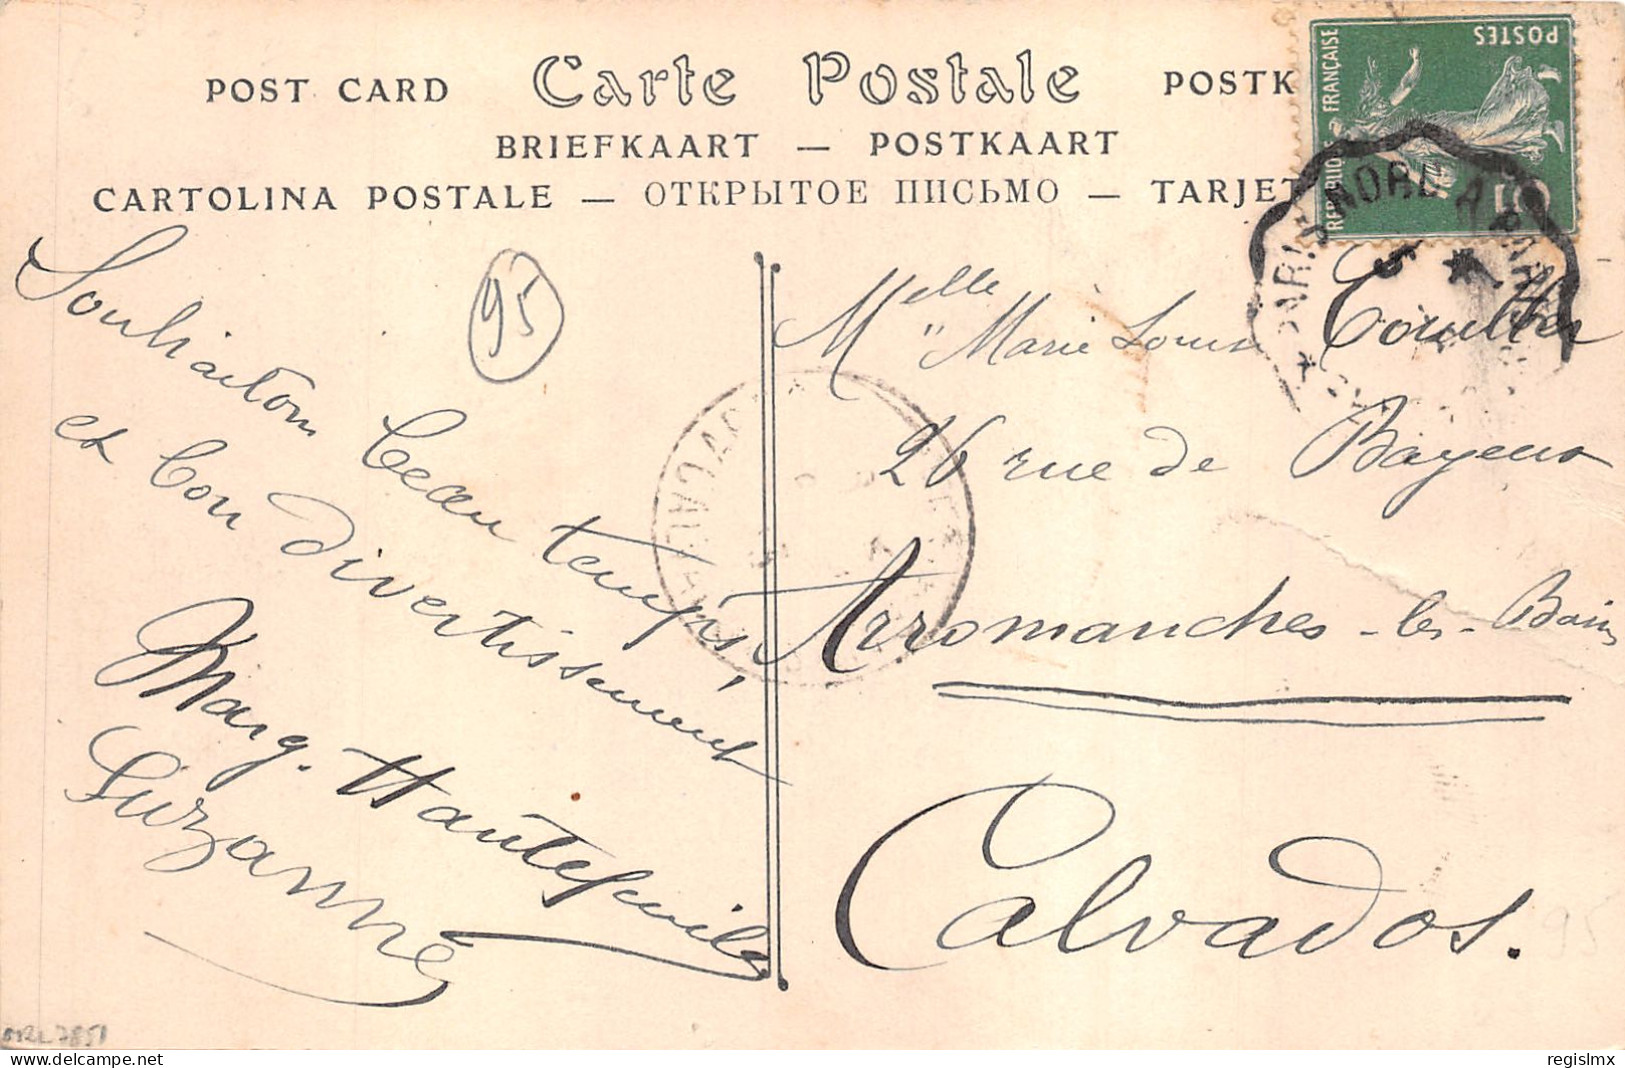 POST CARD Carte Postale POSTK
BRIEFKAART — POSTKAART
CARTOLINA POSTALE — ОТКРЫТОЕ ПИСЬМО — TARJET
POSTES
REPUBLIQUE FRANÇAISE
5
PARIS NORD A
CALVADOS
95
Souhaiton beau temps,
et bon divertissement
Marg. Hautefeuille
Suzanne
Melle Marie Louise
26 rue de Bayeux
Arromanches-les-Bains
Calvados.
95
7851
delcampe.net
regislmx